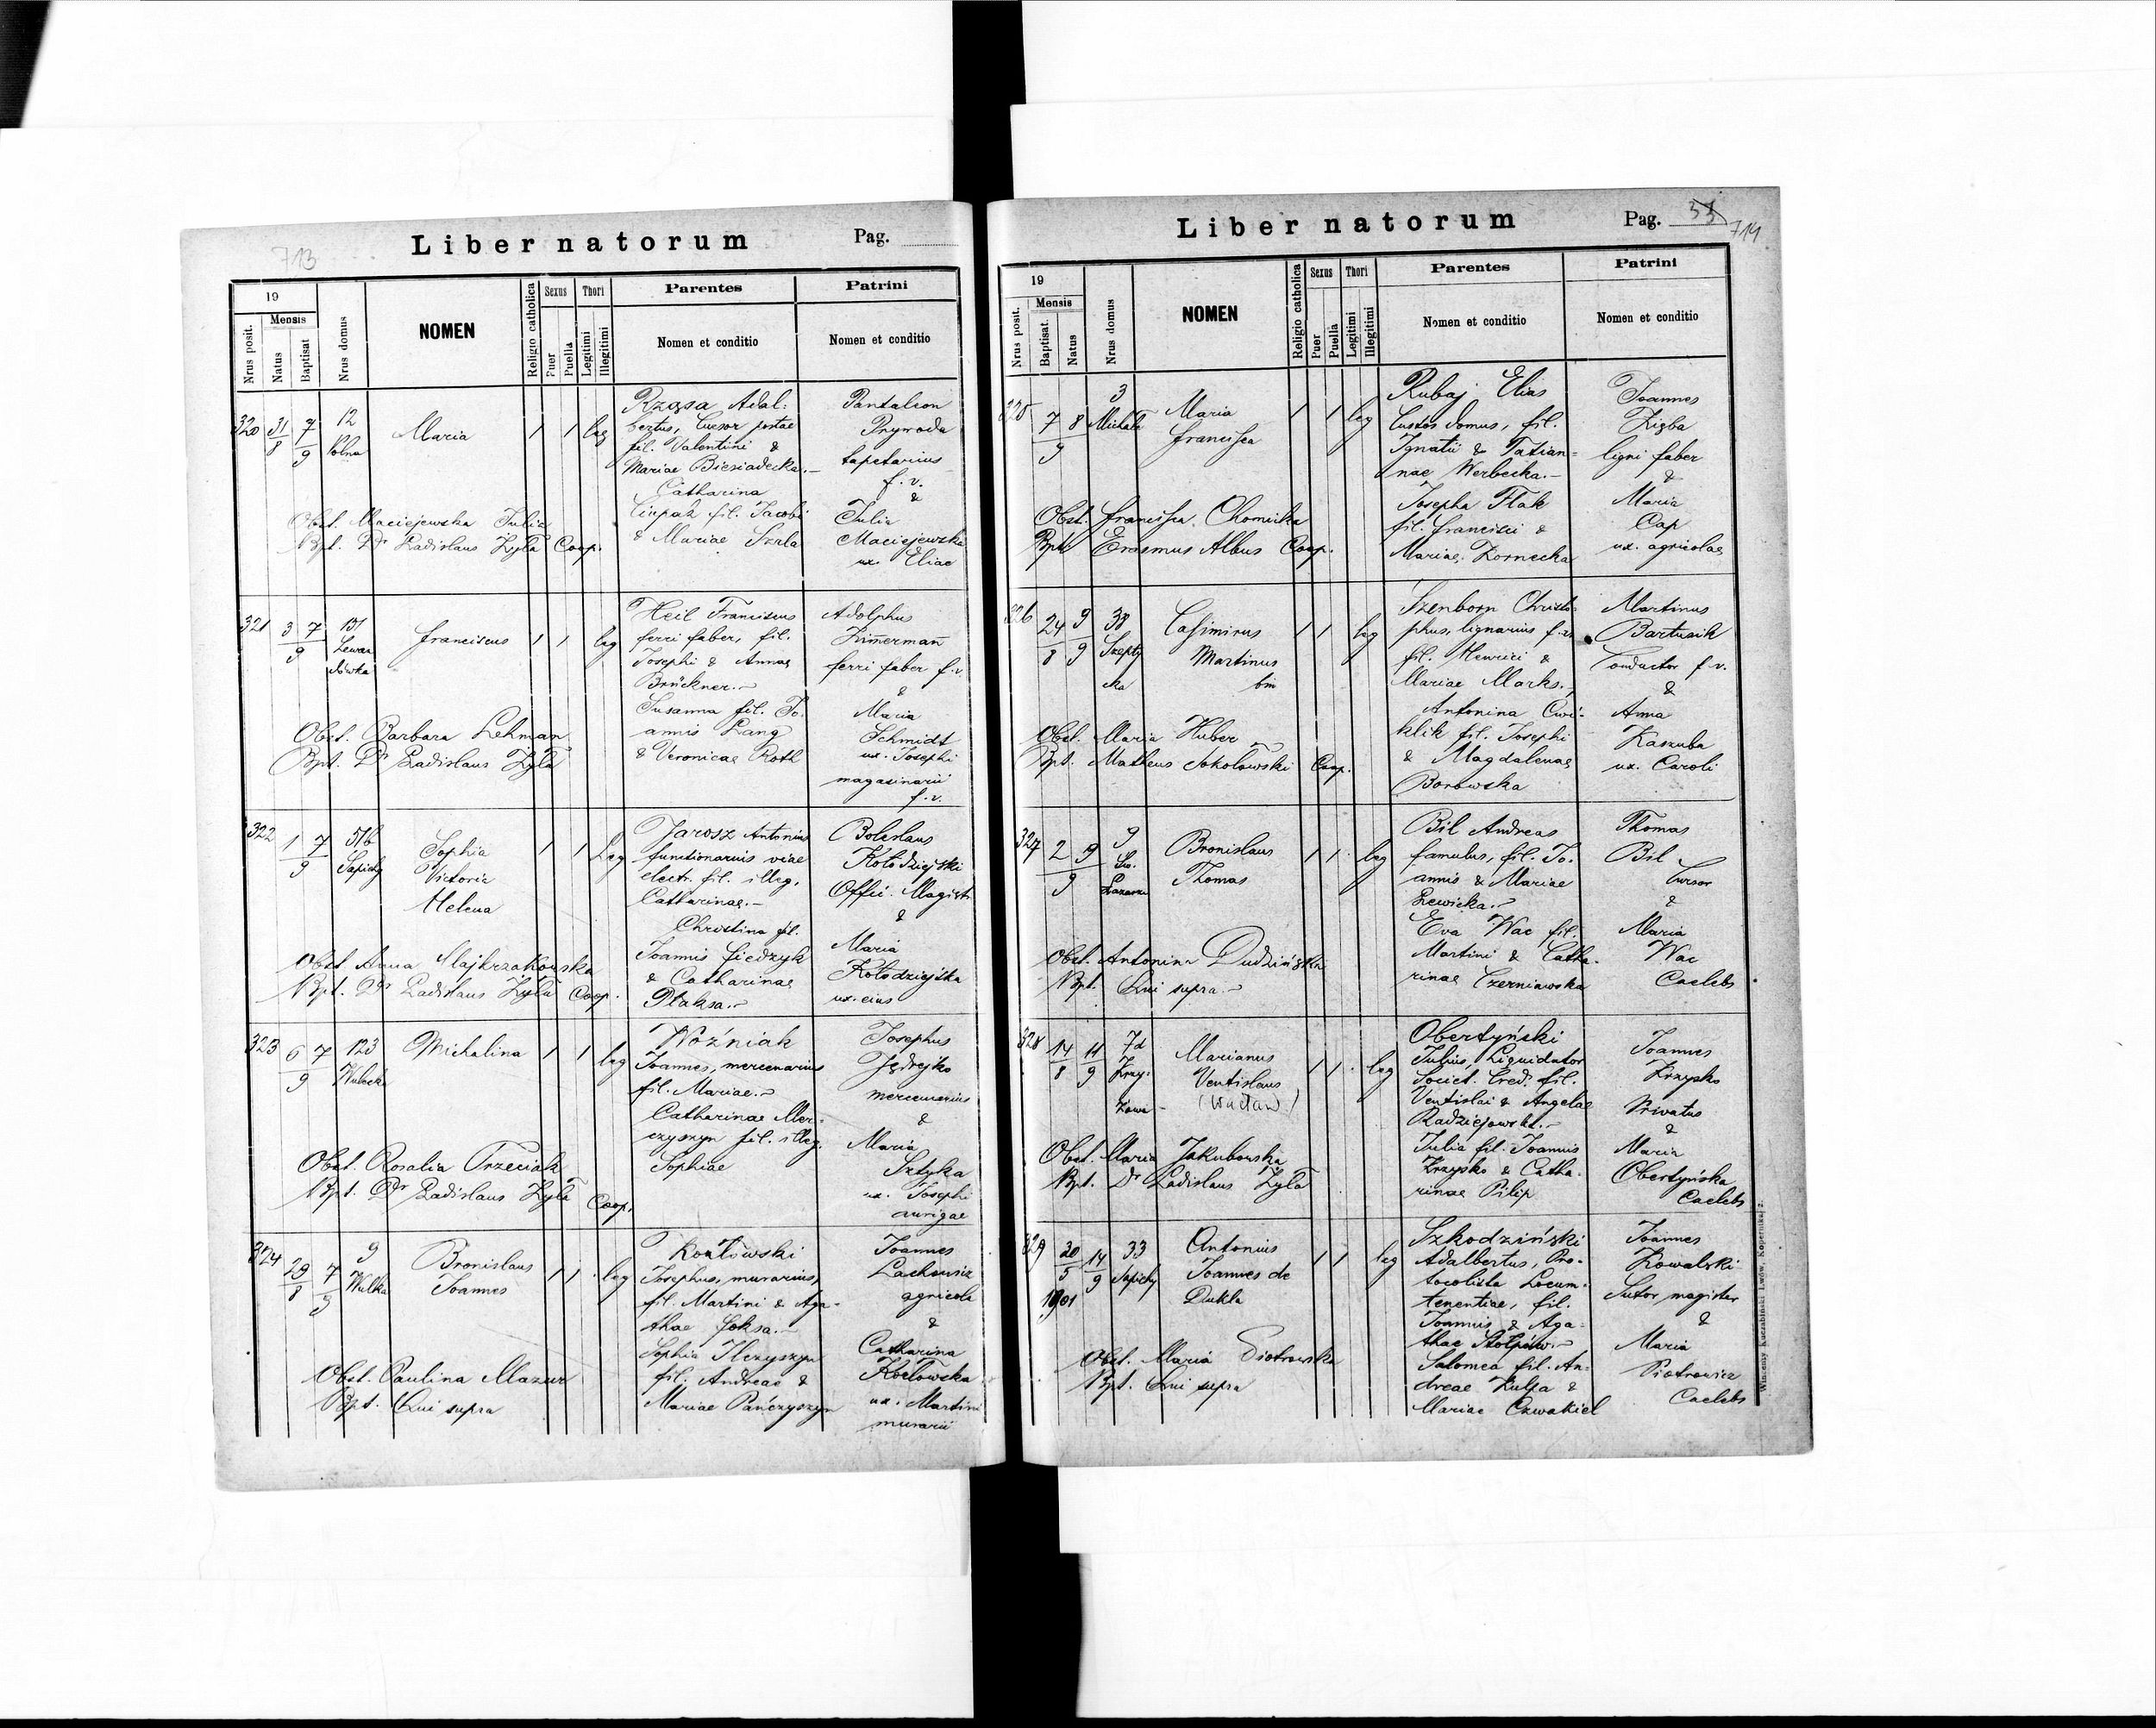 713
Liber natorum
Pag.
19
Mensis
Nrus posit.
Natus
Baptisat
Nrus domus
NOMEN
Religio catholica
Sexus
Puer
Puella
Thori
Legitimi
Illegitimi
Parentes
Nomen et conditio
Patrini
Nomen et conditio
320 31/8 7/9 12 Polna
Maria
1 1 leg
Rząsa Adal-
bertus, Cursor postae
fil. Valentini &
Mariae Biesiadecka.-
Catharina
Ciupak fil. Jacobi
& Mariae Szela
Pantaleon
Prywoda
tapetarius
f. v.
&
Julia
Maciejewska
ux. Eliae
Obst. Maciejewska Julia
Bpt. Dr Ladislaus Żyła Coop.
321 3 7/9 151 Lewan
dówka
Franciscus
1 1 leg
Heil Franciscus
ferri faber, fil.
Josephi & Annae
Brückner.-
Susanna fil. Jo-
annis Lang
& Veronicae Roth
Adolphus
Zimerman
ferri faber f. v.
&
Maria
Schmidt
ux. Josephi
magasinarii
f. v.
Obst. Barbara Lehman
Bpt. Dr Ladislaus Żyła
322 1 7/9 51b Sapiehy
Sophia
Victoria
Helena
1 1 Leg
Jarosz Antonius
functionarius viae
electr. fil. illeg.
Catharinae.-
Christina fil.
Joannis Fiedzyk
& Catharinae
Płaksa.-
Boleslaus
Kołodziejski
Offic. Magistr.
&
Maria
Kołodziejska
ux. eius
Obst. Anna Majkrzakowska
Bpt. Dr Ladislaus Żyła Coop.
323 6 7/9 123 Wulecka
Michalina
1 1 leg
Woźniak
Joannes, mercenarius
fil. Mariae.-
Catharinae Mer-
czyszyn fil. illeg.
Sophiae
Josephus
Jędrejko
mercenarius
&
Maria
Sztyka
ux. Josephi
aurigae
Obst. Rosalia Trzeciak
Bpt. Dr Ladislaus Żyła Coop.
324 29/8 7/9 9 Wulka
Bronislaus
Joannes
1 1 leg
Kozłowski
Josephus, murarius,
fil. Martini & Aga-
thae Joksa.-
Sophia Ilczyszyn
fil. Andreae &
Mariae Pańczyszyn
Joannes
Lachowicz
agricola
&
Catharina
Kozłowska
ux. Martini
murarii
Obst. Paulina Mazur
Bpt. Qui supra
Liber natorum
Pag. 53
714
19
Mensis
Nrus posit.
Baptisat.
Natus
Nrus domus
NOMEN
Religio catholica
Sexus
Puer
Puella
Thori
Legitimi
Illegitimi
Parentes
Nomen et conditio
Patrini
Nomen et conditio
325 7 8/9 3 Michała
Maria
Francisca
1 1 leg
Rubaj Elias
Custos domus, fil.
Ignatii & Tatian-
nae Werbecka.-
Josepha Flak
fil. Francisci &
Mariae Zornecka
Joannes
Zięba
ligni faber
&
Maria
Cap
ux. agricolae
Obst. Francisca Chomicka
Bpt. Erasmus Albus Coop.
326 24/8 9/9 38 Szepty
cka
Casimirus
Martinus
bin
1 1 leg
Szenborn Christo-
phus, lignarius f. v.
fil. Henrici &
Mariae Marks.,
Antonina Ćwi-
klik fil. Josephi
& Magdalenae
Borowska
Martinus
Bartusik
Conductor f. v.
&
Anna
Kaszuba
ux. Caroli
Obst. Maria Huber
Bpt. Matheus Sokołowski Coop.
327 2 9/9 9 Św.
Łazarza
Bronislaus
Thomas
1 1 leg
Bil Andreas
famulus, fil. Jo-
annis & Mariae
Lewicka.-
Eva Wac fil.
Martini & Catha-
rinae Czerniawska
Thomas
Bil
Cursor
&
Maria
Wac
Caelebs
Obst. Antonina Dudzińska
Bpt. Qui supra.-
328 14/8 11/9 7d Krzy-
żowa
Marianus
Ventislaus
(Wacław)
1 1 leg
Obertyński
Julius, Liquidator
Societ. Cred. fil.
Ventislai & Angelae
Radziejowski.-
Julia fil. Joannis
Krzysko & Catha-
rinae Pilip
Joannes
Krzysko
Privatus
&
Maria
Obertyńska
Caelebs
Obst. Maria Jakubowska
Bpt. Dr Ladislaus Żyła
329 30/5 1901 14/9 33 Sapiehy
Antonius
Joannes de
Dukla
1 1 leg
Szkodziński
Adalbertus, Pro-
tocolista Locum-
tenentiae, fil.
Joannis & Aga-
thae Stołpów.-
Salomea fil. An-
dreae Kulpa &
Mariae Czwakiel
Joannes
Kowalski
Sutor magister
&
Maria
Piotrowicz
Caelebs
Obst. Maria Piotrowska
Bpt. Qui supra
Winiarny Kuczabiński Lwów, Kopernika 2.